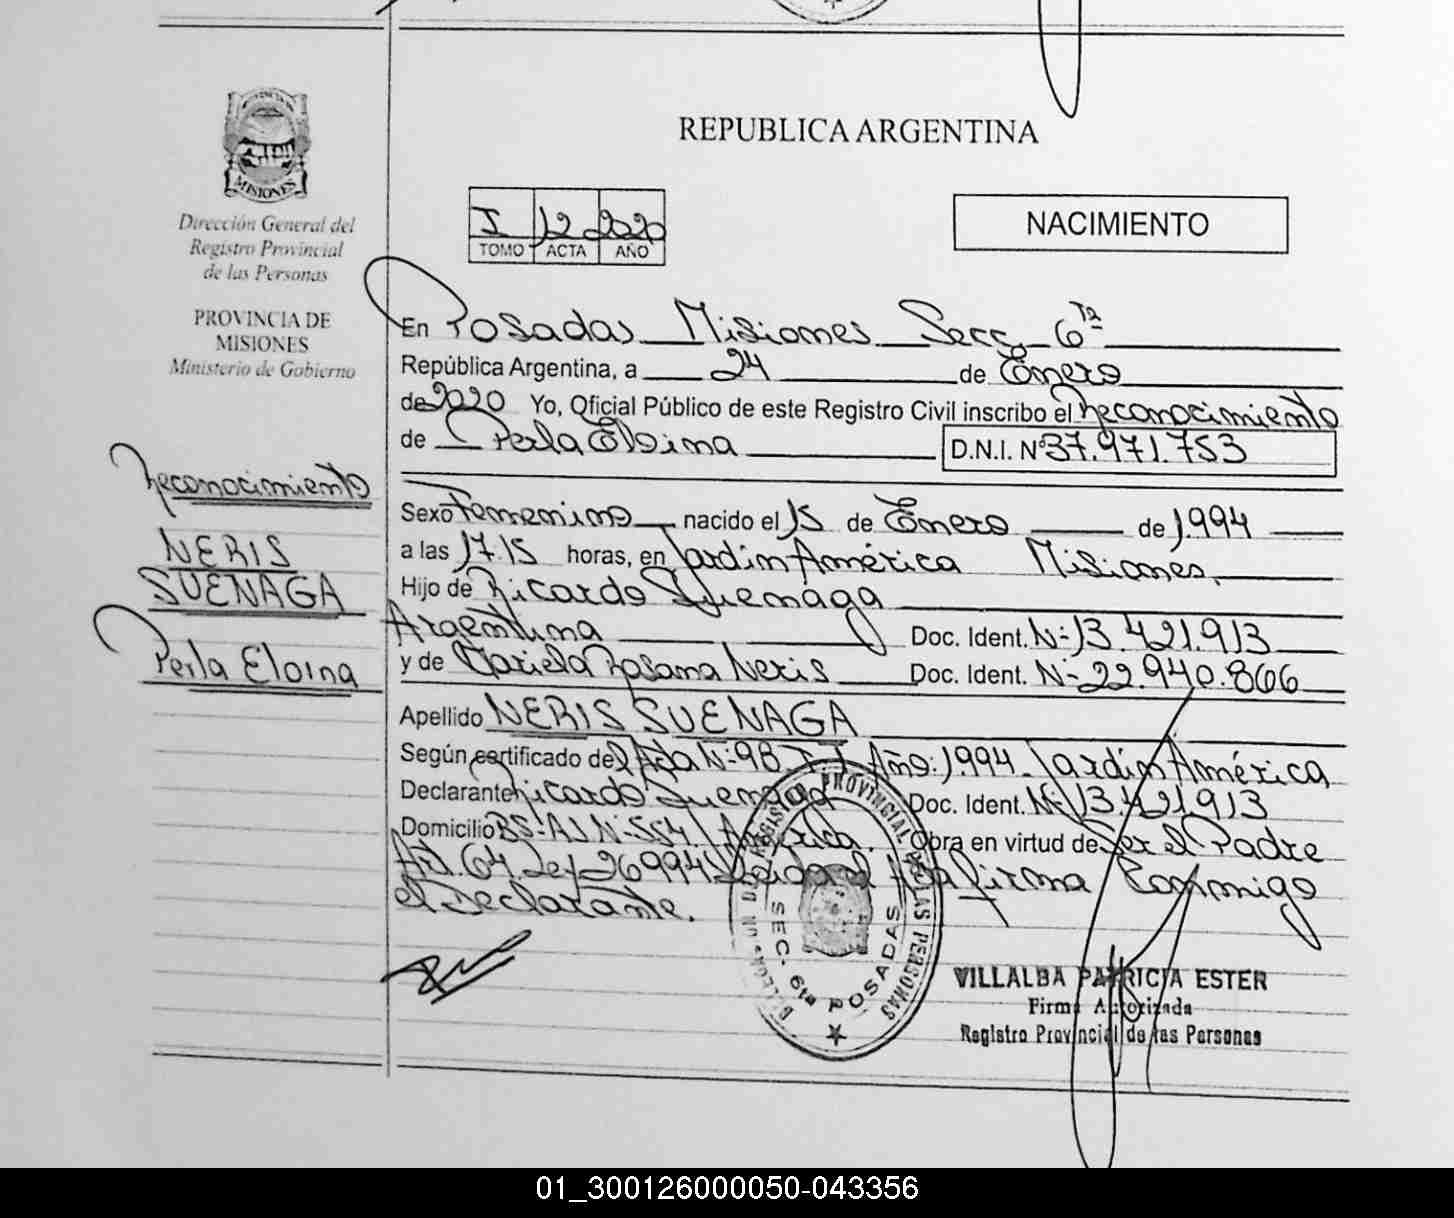 MISIONES
Dirección General del
Registro Provincial
de las Personas
PROVINCIA DE
MISIONES
Ministerio de Gobierno
Reconocimiento
NERIS
SUENAGA
Perla Eloina
REPUBLICA ARGENTINA
I 12 2020
TOMO ACTA AÑO
NACIMIENTO
En Posadas Misiones Secc. 6ta
República Argentina, a 24 de Enero
de 2020 Yo, Oficial Público de este Registro Civil inscribo el Reconocimiento
de Perla Eloina D.N.I. Nº 37.971.753
Sexo Femenino nacido el 15 de Enero de 1.994
a las 17.15 horas, en Jardin América Misiones.
Hijo de Ricardo Suenaga
Argentina Doc. Ident. Nº 13.421.913
y de Mariela Rosana Neris Doc. Ident. Nº 22.940.866
Apellido NERIS SUENAGA
Según certificado del Acta Nº 98 T I Año: 1.994 Jardin América
Declarante Ricardo Suenaga Doc. Ident. Nº 13.421.913
Domicilio BS-AS Nº 554 J América. Obra en virtud de Ser el Padre
Art. 64. Ley 26994 Leida el Acta firma Conmigo
el Declarante.
REGISTRO PROVINCIAL DE LAS PERSONAS
SEC. 6ta POSADAS
VILLALBA PATRICIA ESTER
Firma Autorizada
Registro Provincial de las Personas
01_300126000050-043356